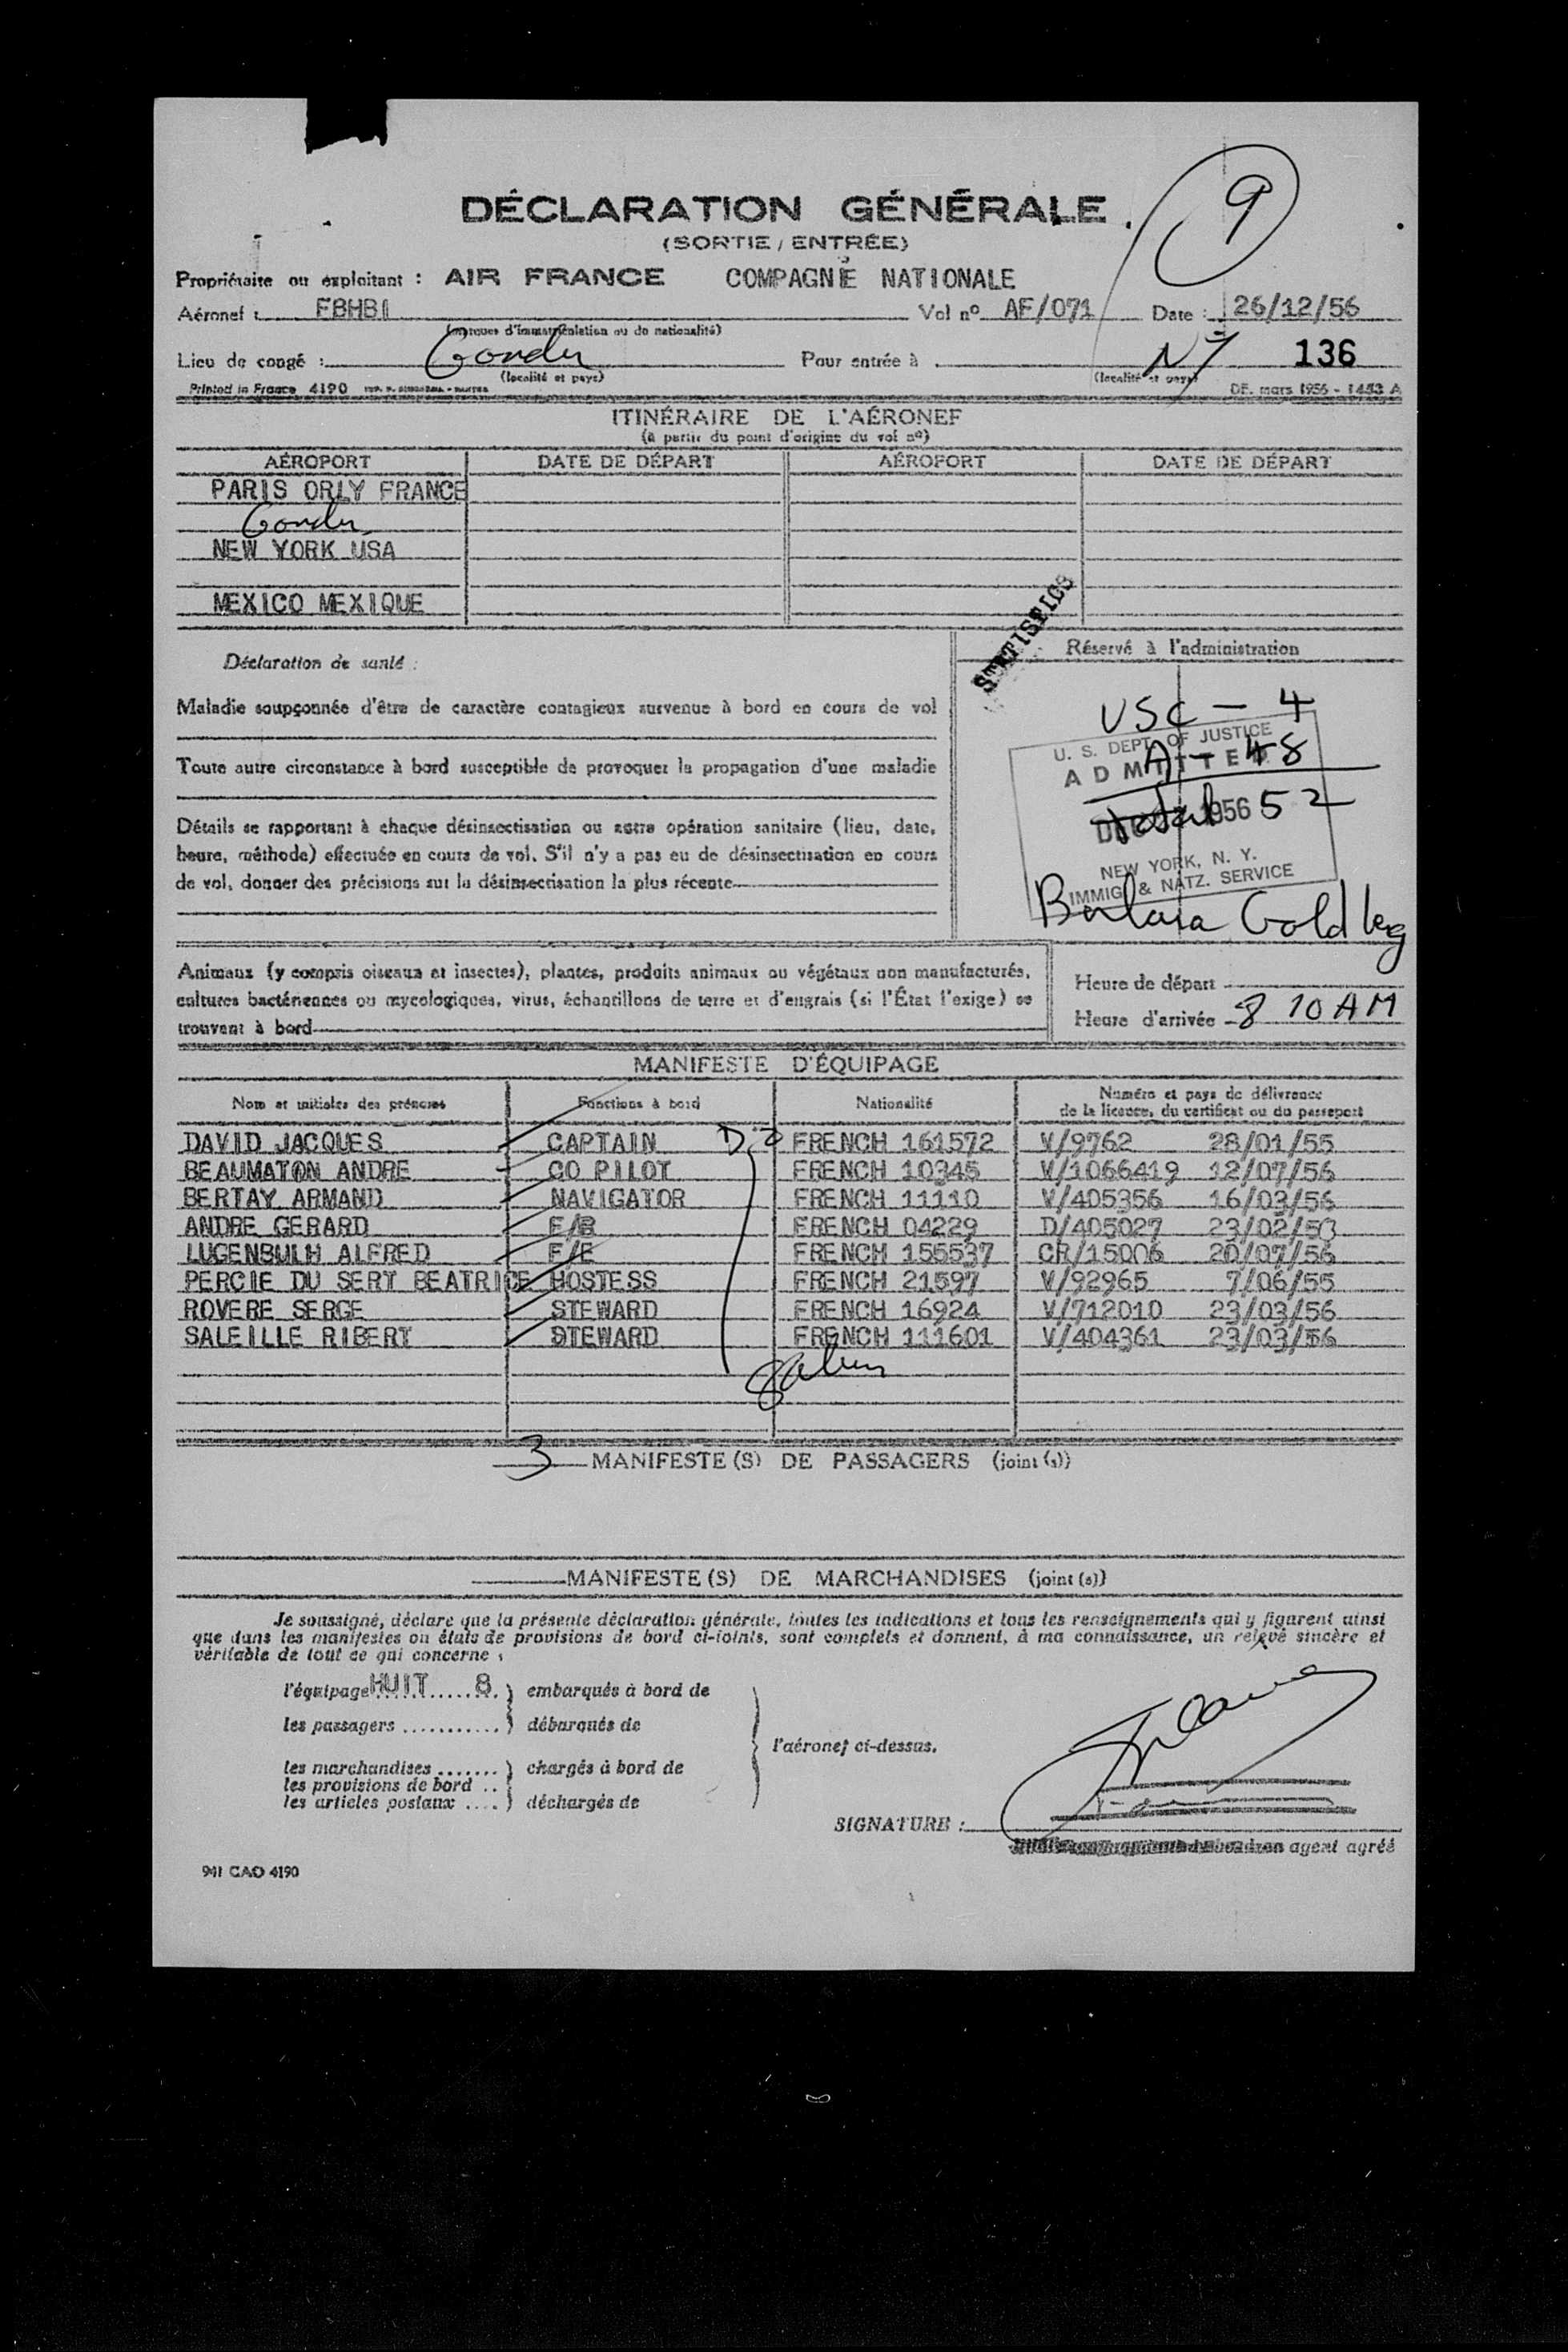 9
DÉCLARATION GÉNÉRALE
(SORTIE / ENTRÉE)
Propriétaire ou exploitant : AIR FRANCE COMPAGNIE NATIONALE
Aéronef : FBHBI Vol nº AF/071 Date : 26/12/56
(marques d'immatriculation ou de nationalité)
Lieu de congé : Gander Pour entrée à NY 136
(localité et pays) (localité et pays)
Printed in France 4190 DE. mars 1956 - 1453 A
ITINÉRAIRE DE L'AÉRONEF
(à partir du point d'origine du vol nº)
AÉROPORT DATE DE DÉPART AÉROPORT DATE DE DÉPART
PARIS ORLY FRANCE
Gander
NEW YORK USA
MEXICO MEXIQUE
STATISTICS
Déclaration de santé :
Réservé à l'administration
Maladie soupçonnée d'être de caractère contagieux survenue à bord en cours de vol
Toute autre circonstance à bord susceptible de provoquer la propagation d'une maladie
Détails se rapportant à chaque désinsectisation ou autre opération sanitaire (lieu, date,
heure, méthode) effectuée en cours de vol. S'il n'y a pas eu de désinsectisation en cours
de vol, donner des précisions sur la désinsectisation la plus récente
USC - 4
U. S. DEPT. OF JUSTICE
ADMITTED
A - 48
Total 52
1956
NEW YORK, N. Y.
IMMIG. & NATZ. SERVICE
Barbara Goldberg
Animaux (y compris oiseaux et insectes), plantes, produits animaux ou végétaux non manufacturés,
cultures bactériennes ou mycologiques, virus, échantillons de terre et d'engrais (si l'État l'exige) se
trouvant à bord
Heure de départ
Heure d'arrivée 8 10 AM
MANIFESTE D'ÉQUIPAGE
Nom et initiales des prénoms Fonctions à bord Nationalité Numéro et pays de délivrance
de la licence, du certificat ou du passeport
DAVID JACQUES CAPTAIN FRENCH 161572 V/9762 28/01/55
BEAUMATON ANDRE CO PILOT FRENCH 10345 V/1066419 12/07/56
BERTAY ARMAND NAVIGATOR FRENCH 11110 V/405356 16/03/56
ANDRE GERARD FRENCH 04229 D/405027
LUGENBULH ALFRED F/E FRENCH 155537 CR/15006 20/07/56
PERCIE DU SERT BEATRICE HOSTESS FRENCH 21597 V/92965 7/06/55
ROVERE SERGE STEWARD FRENCH 16924 V/712010 23/03/56
SALEILLE RIBERT STEWARD FRENCH 111601 V/404361 23/03/56
3 MANIFESTE(S) DE PASSAGERS (joint (s))
MANIFESTE(S) DE MARCHANDISES (joint (s))
Je soussigné, déclare que la présente déclaration générale, toutes les indications et tous les renseignements qui y figurent ainsi
que dans les manifestes ou états de provisions de bord ci-joints, sont complets et donnent, à ma connaissance, un relevé sincère et
véritable de tout ce qui concerne :
l'équipage HUIT 8 embarqués à bord de
les passagers débarqués de
l'aéronef ci-dessus.
les marchandises chargés à bord de
les provisions de bord
les articles postaux déchargés de
SIGNATURE :
agent agréé
941 CAO 4190